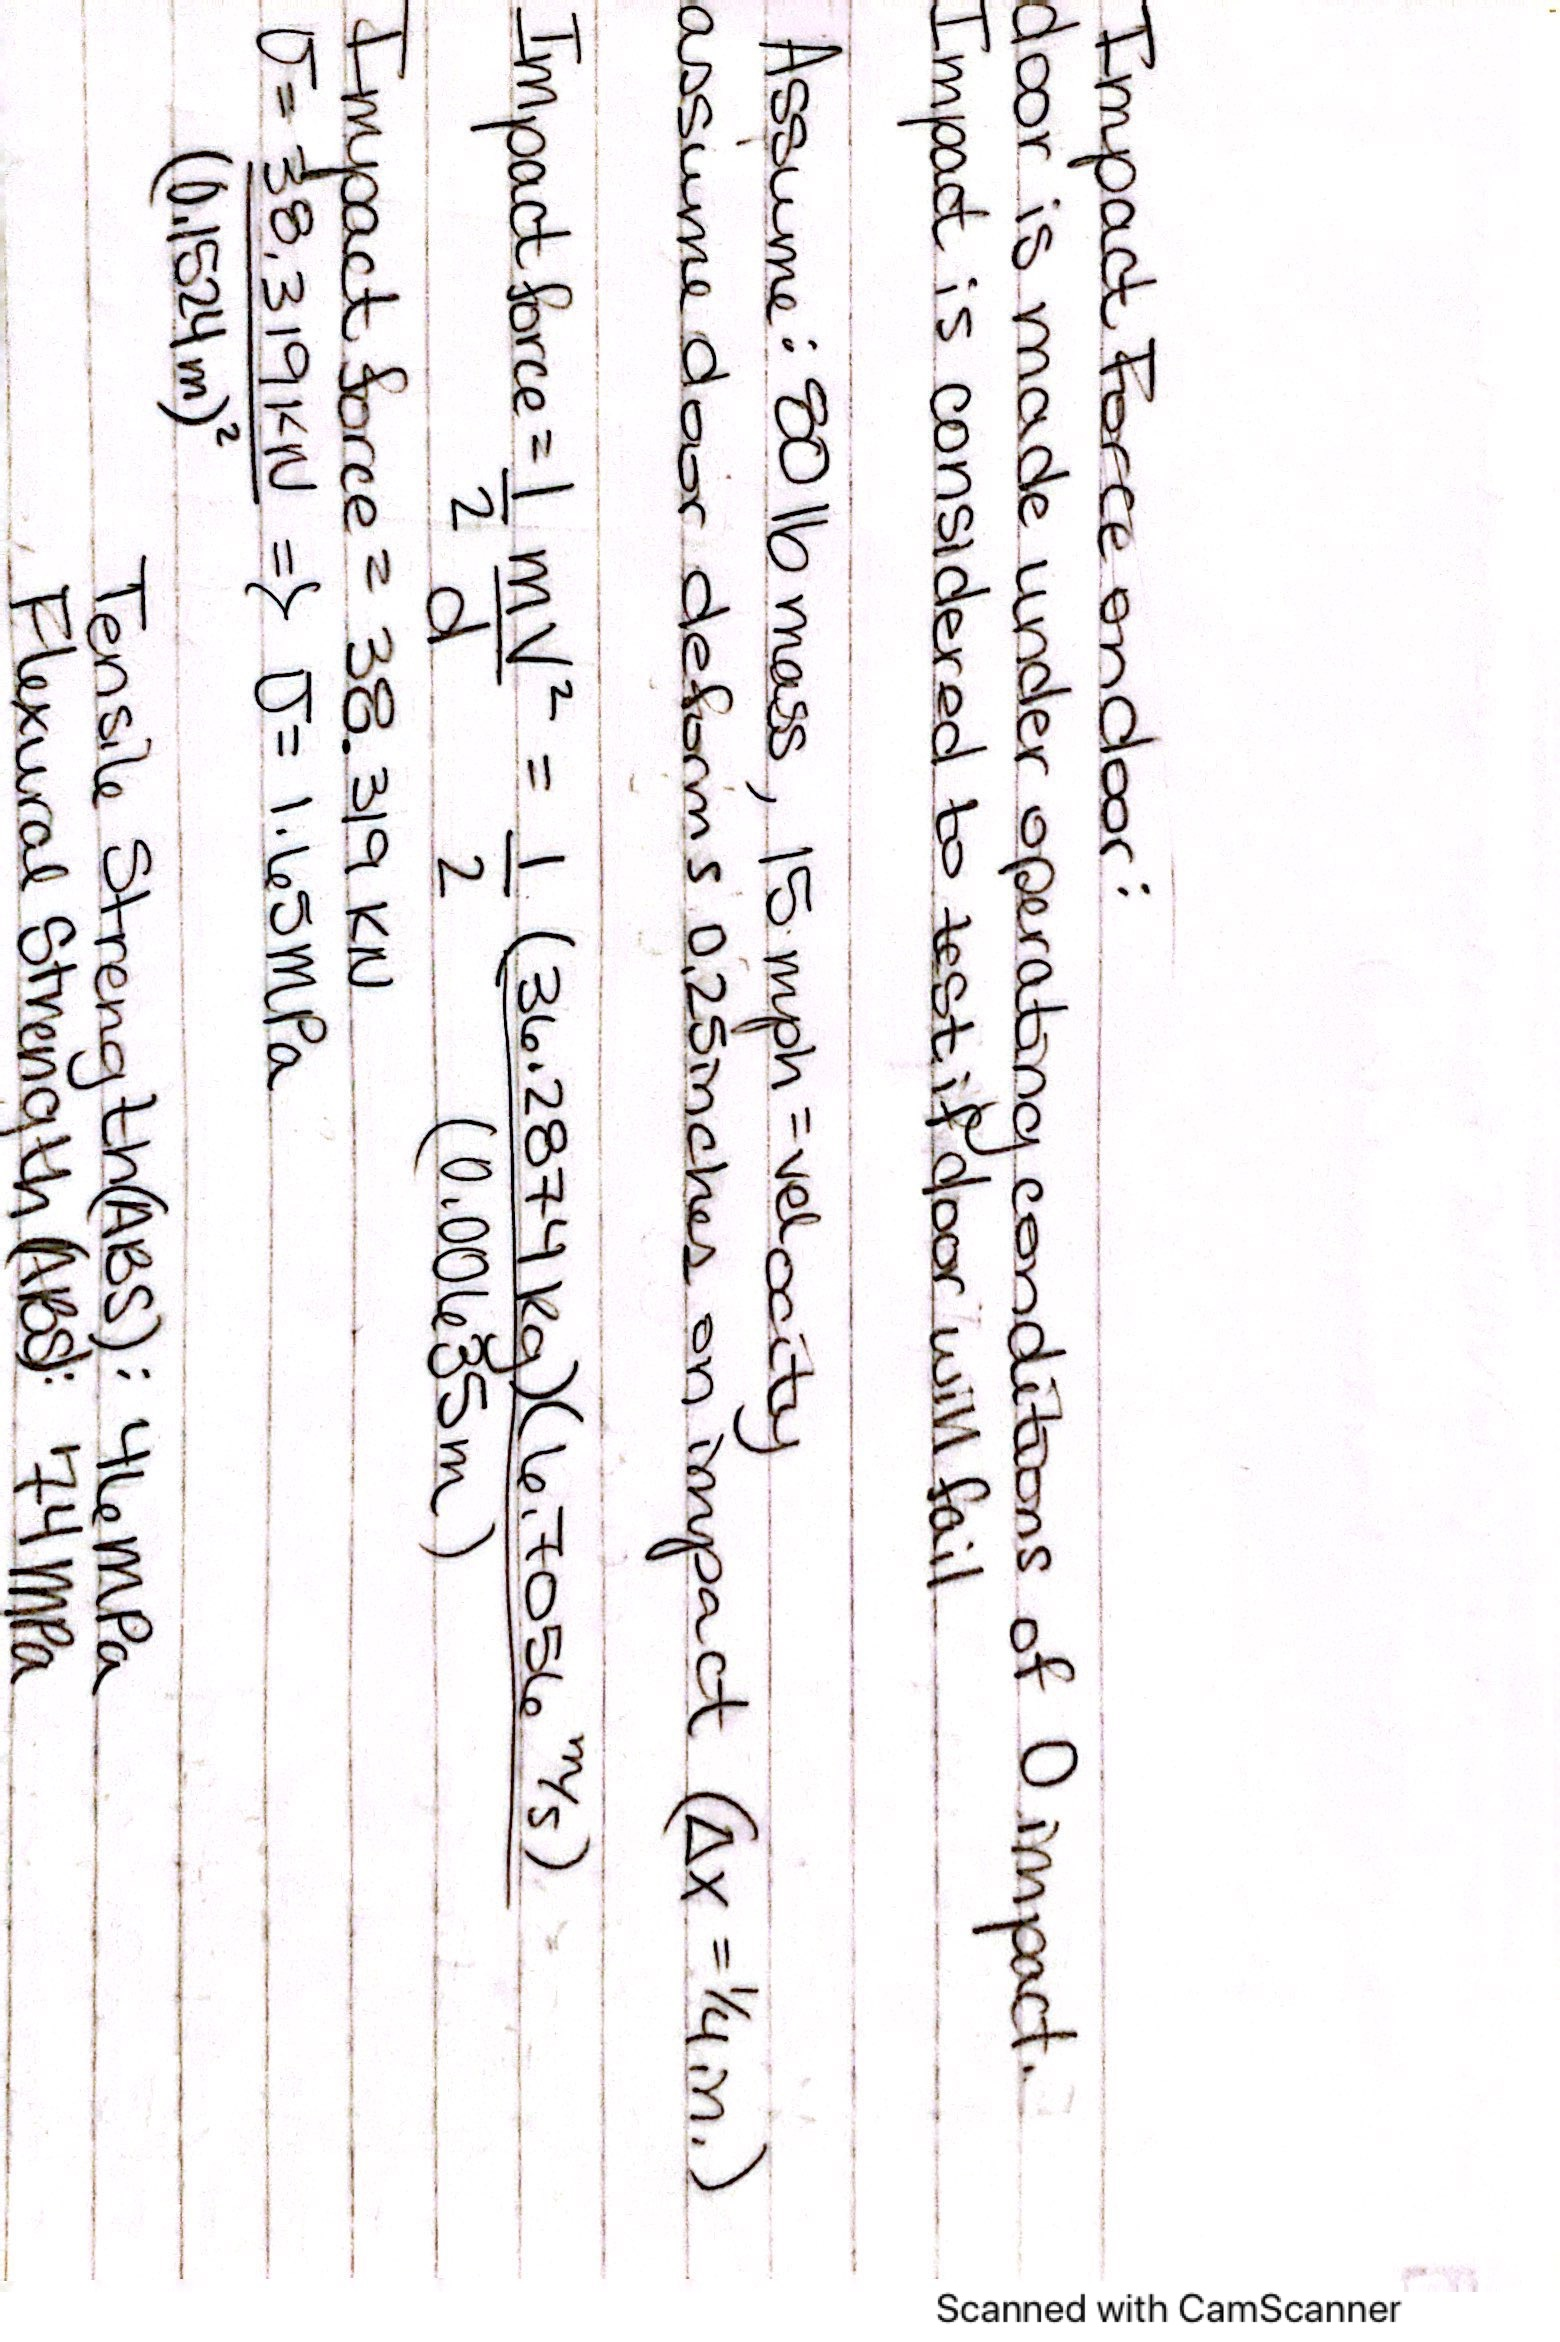 Impact Force on door:
door is made under operating conditions of 0 impact.
Impact is considered to test if door will fail
Assume: 80 lb mass, 15 mph = velocity
assume door deforms 0.25 inches on impact (Δx = 1/4 in.)
Impact force = 1/2 mV²/d = 1/2 (36.2874 kg)(6.7056 m/s)/(0.00635m)
Impact force = 38.319 KN
σ = 38.319KN/(0.1524m)² => σ = 1.65MPa
Tensile Strength(ABS): 46MPa
Flexural Strength (ABS): 74 MPa
Scanned with CamScanner